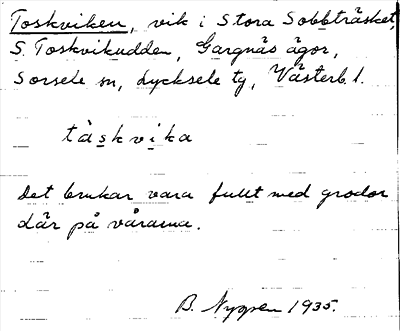 Toskviken, vik i Stora Sobbträsket,
S. Toskvikudden, Gargnäs ägor,
Sorsele sn, Lycksele tg, Västerb. l.
tåskvika
Det brukar vara fullt med grodor
där på vårarna.
B. Nygren 1935.